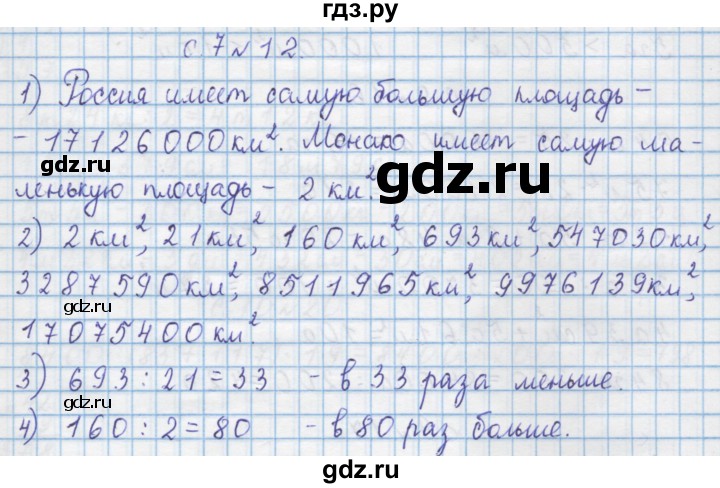 гдз.ру
С 7 № 12.
1) Россия имеет самую большую площадь –
– 17126000 км². Монако имеет самую ма-
gdz.ru
gdz.ru
ленькую площадь – 2 км².
2) 2 км², 21 км², 160 км², 693 км², 547030 км²,
3287590 км², 8511965 км², 9976139 км²,
gdz.ru
gdz.ru
17075400 км².
3) 693 : 21 = 33 – в 33 раза меньше.
gdz.ru
4) 160 : 2 = 80 – в 80 раз больше.
gdz.ru